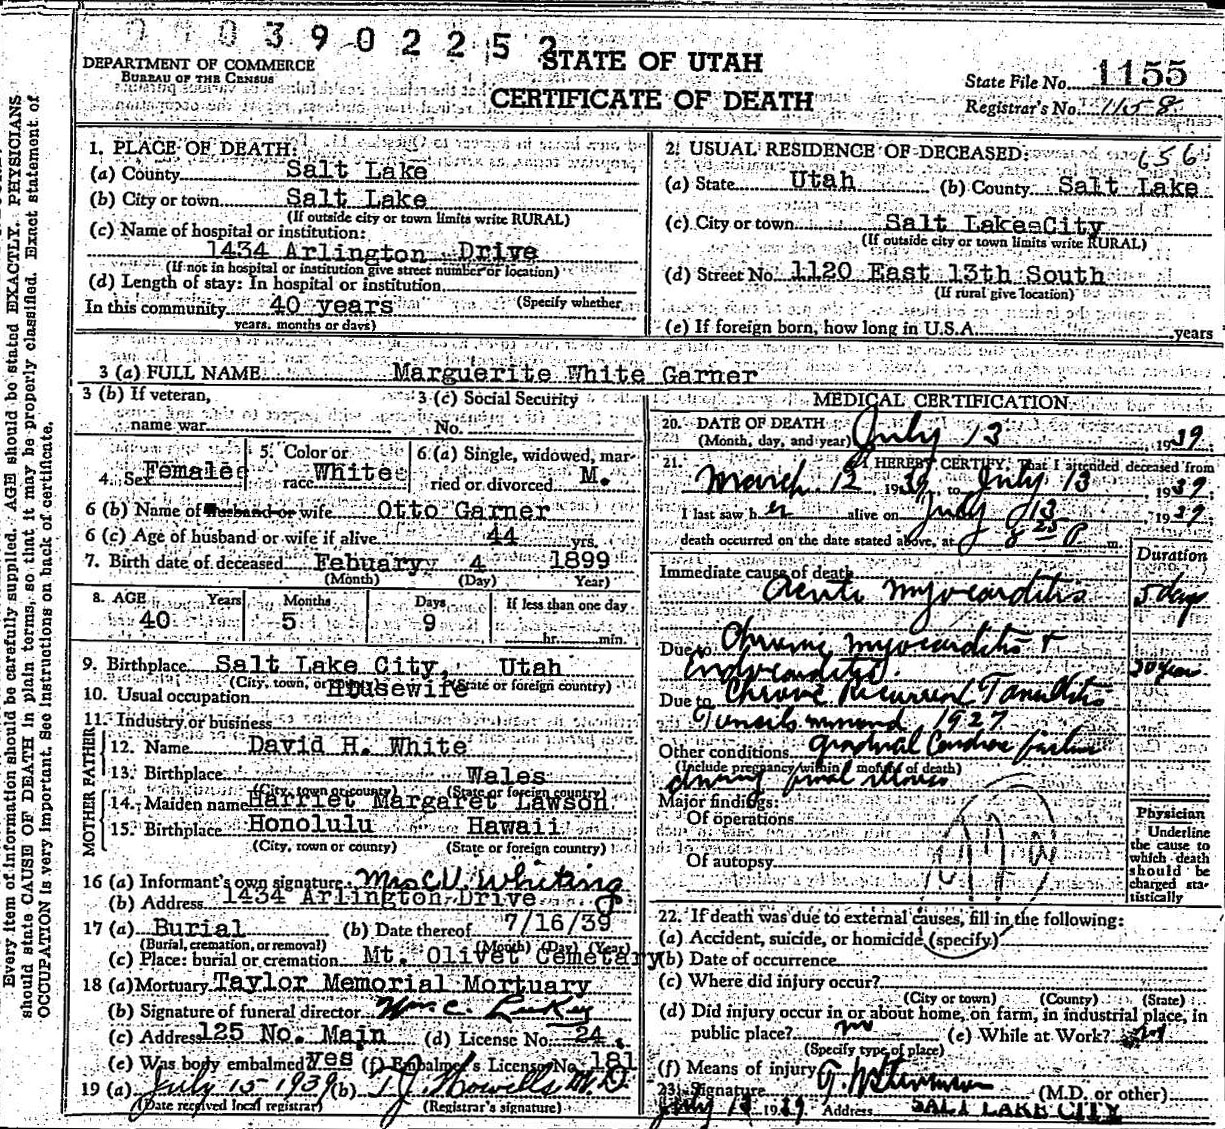 0 0 0 3 9 0 2 2 5 2
DEPARTMENT OF COMMERCE
BUREAU OF THE CENSUS
STATE OF UTAH
CERTIFICATE OF DEATH
State File No. 1155
Registrar's No. 1158
Every item of information should be carefully supplied. AGE should be stated EXACTLY. PHYSICIANS
should state CAUSE OF DEATH in plain terms, so that it may be properly classified. Exact statement of
OCCUPATION is very important. See instructions on back of certificate.
1. PLACE OF DEATH:
(a) County Salt Lake
(b) City or town Salt Lake
(If outside city or town limits write RURAL)
(c) Name of hospital or institution:
1434 Arlington Drive
(If not in hospital or institution give street number or location)
(d) Length of stay: In hospital or institution
In this community 40 years (Specify whether
years, months or days)
2. USUAL RESIDENCE OF DECEASED: 656
(a) State Utah (b) County Salt Lake
(c) City or town Salt Lake City
(If outside city or town limits write RURAL)
(d) Street No. 1120 East 13th South
(If rural give location)
(e) If foreign born, how long in U.S.A. years
3 (a) FULL NAME Marguerite White Garner
3 (b) If veteran,
name war
3 (c) Social Security
No.
4. Sex Female
5. Color or
race White
6 (a) Single, widowed, mar-
ried or divorced M.
6 (b) Name of husband or wife Otto Garner
6 (c) Age of husband or wife if alive 44 yrs.
7. Birth date of deceased Febuary 4 1899
(Month) (Day) Year)
8. AGE Years Months Days If less than one day
40 5 9 hr. min.
9. Birthplace Salt Lake City, Utah
(City, town, or county) (State or foreign country)
10. Usual occupation Housewife
11. Industry or business
FATHER
12. Name David H. White
13. Birthplace Wales
(City, town or county) (State or foreign country)
MOTHER
14. Maiden name Harriet Margaret Lawson
15. Birthplace Honolulu Hawaii
(City, town or county) (State or foreign country)
16 (a) Informant's own signature Mrs C.V. Whiting
(b) Address 1434 Arlington Drive
17 (a) Burial (b) Date thereof 7/16/39
(Burial, cremation, or removal) (Month) (Day) (Year)
(c) Place: burial or cremation Mt. Olivet Cemetary
18 (a) Mortuary Taylor Memorial Mortuary
(b) Signature of funeral director Wm. C.
(c) Address 125 No. Main (d) License No. 24
(e) Was body embalmed? yes (f) Embalmer's License No. 181
19 (a) July 15 1939 (b) T.J. Howells M.D
(Date received local registrar) (Registrar's signature)
MEDICAL CERTIFICATION
20. DATE OF DEATH
(Month, day, and year) July 13, 1939.
21. I HEREBY CERTIFY, That I attended deceased from
March 12, 1939, to July 13 1939
I last saw her alive on July 13 1939
death occurred on the date stated above, at 8 25 P m.
Duration
Immediate cause of death
Acute myocarditis 5 days
Due to Chronic myocarditis +
Endocarditis.
Due to Chronic Recurrent Tonsilitis
Tonsils removed 1927
Other conditions gradual Cardiac failure
(Include pregnancy within months of death)
during final illness
Major findings:
Of operations
Of autopsy
Physician
Underline
the cause to
which death
should be
charged sta-
tistically
22. If death was due to external causes, fill in the following:
(a) Accident, suicide, or homicide (specify)
(b) Date of occurrence
(c) Where did injury occur?
(City or town) (County) (State)
(d) Did injury occur in or about home, on farm, in industrial place, in
public place? no (e) While at Work? no
(Specify type of place)
(f) Means of injury
23. Signature (M.D. or other)
July 1939 Address SALT LAKE CITY